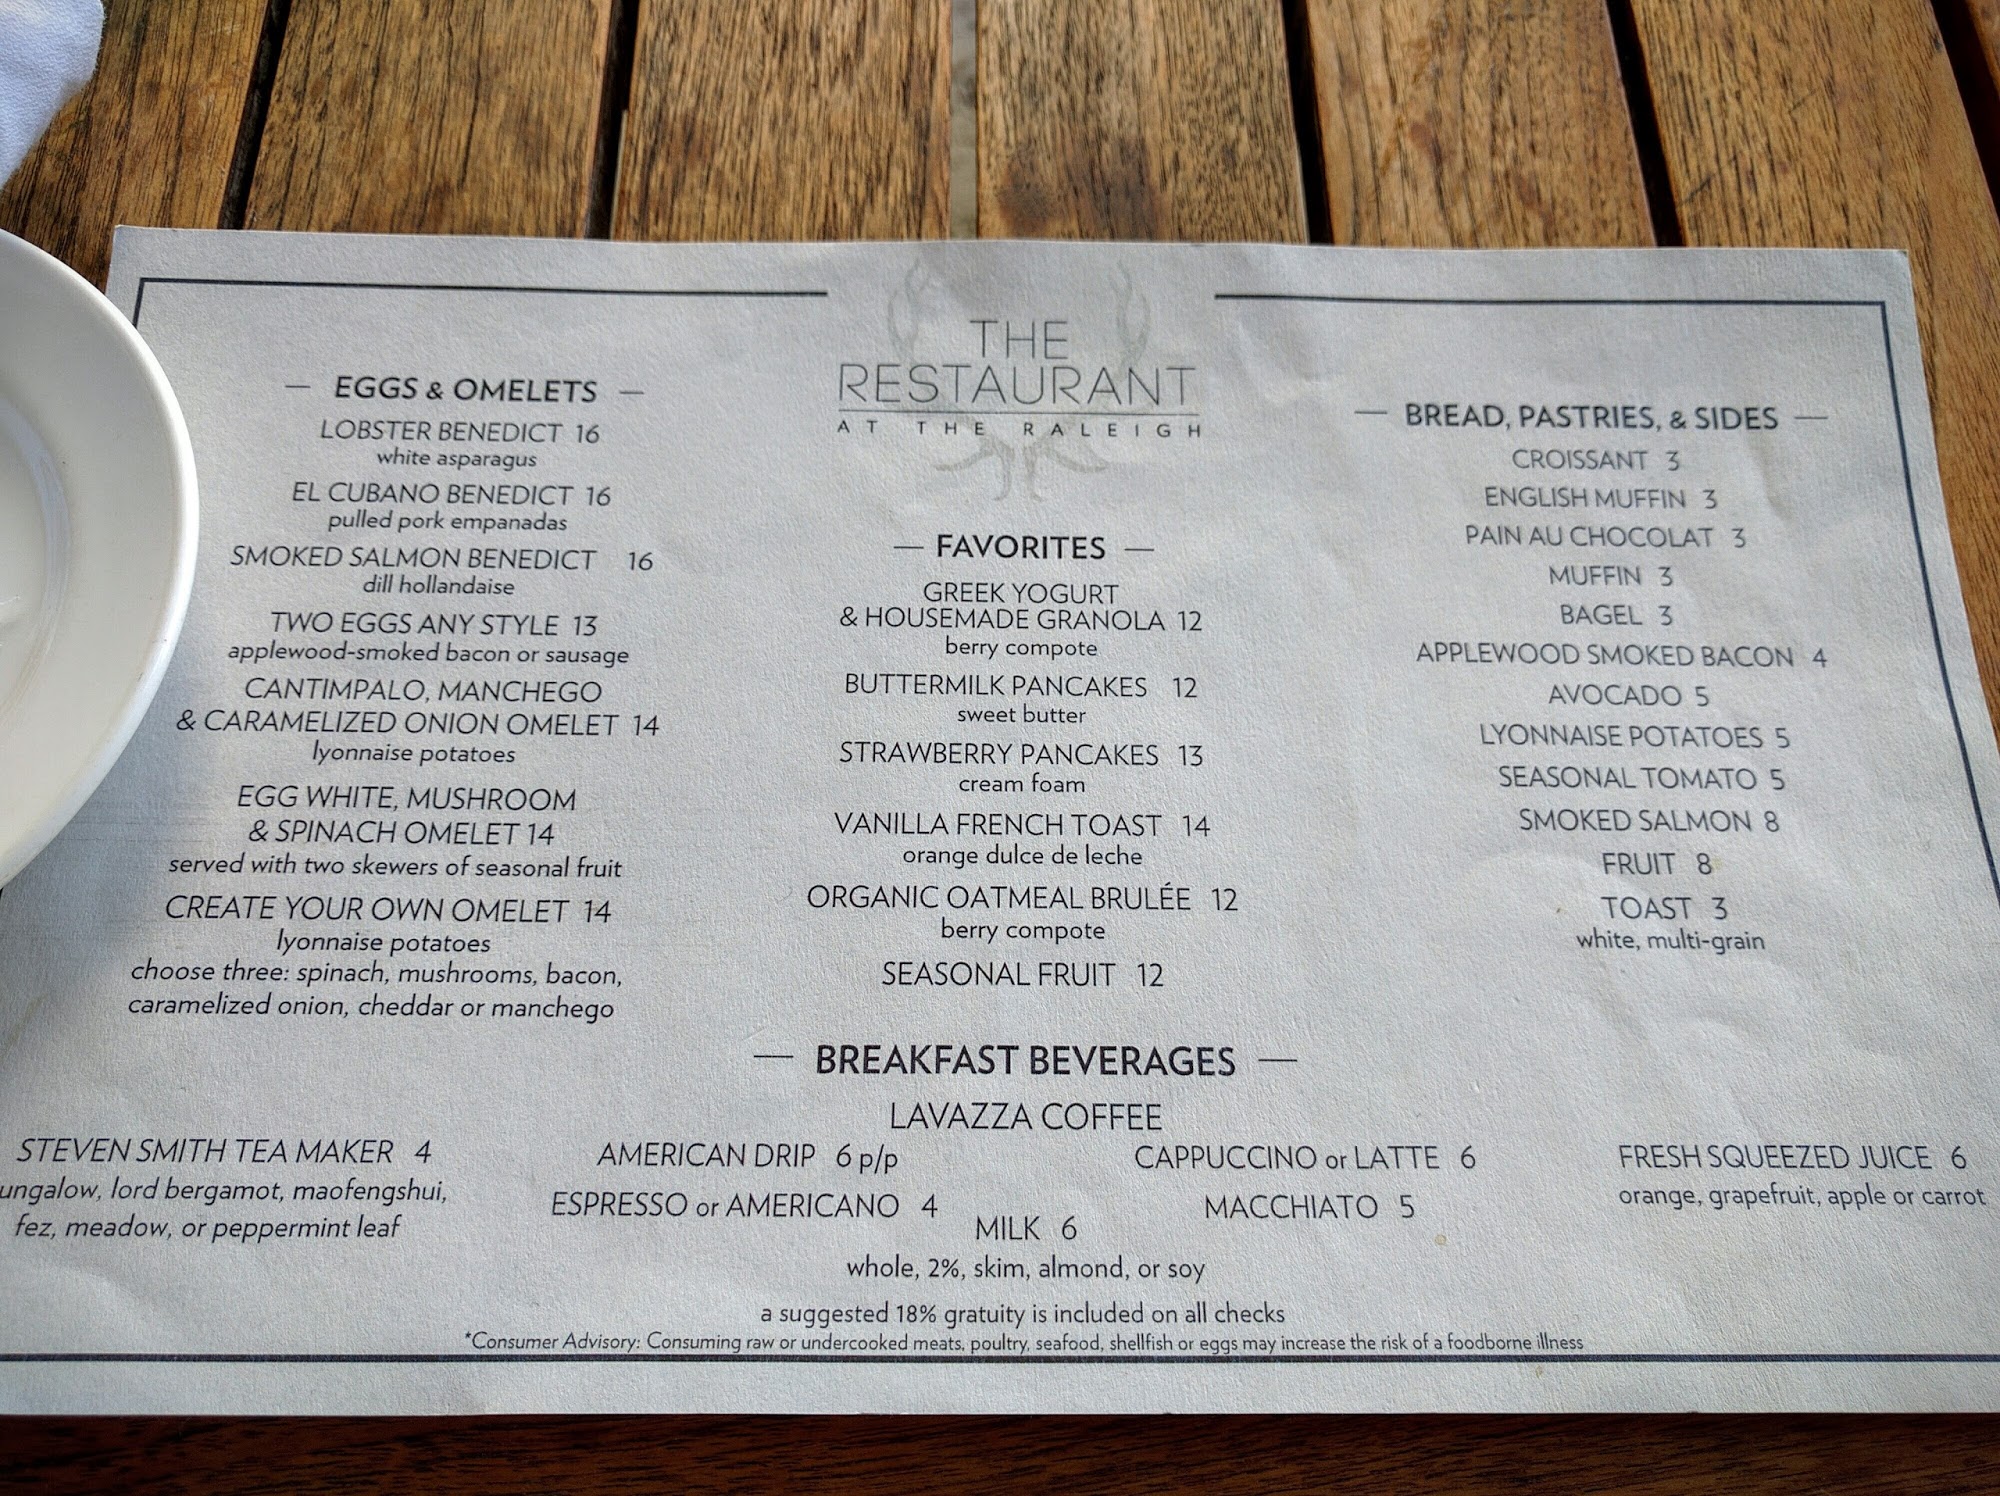 THE
RESTAURANT
AT THE RALEIGH
— EGGS & OMELETS —
LOBSTER BENEDICT 16
white asparagus
EL CUBANO BENEDICT 16
pulled pork empanadas
SMOKED SALMON BENEDICT 16
dill hollandaise
TWO EGGS ANY STYLE 13
applewood-smoked bacon or sausage
CANTIMPALO, MANCHEGO
& CARAMELIZED ONION OMELET 14
lyonnaise potatoes
EGG WHITE, MUSHROOM
& SPINACH OMELET 14
served with two skewers of seasonal fruit
CREATE YOUR OWN OMELET 14
lyonnaise potatoes
choose three: spinach, mushrooms, bacon,
caramelized onion, cheddar or manchego
— FAVORITES —
GREEK YOGURT
& HOUSEMADE GRANOLA 12
berry compote
BUTTERMILK PANCAKES 12
sweet butter
STRAWBERRY PANCAKES 13
cream foam
VANILLA FRENCH TOAST 14
orange dulce de leche
ORGANIC OATMEAL BRULÉE 12
berry compote
SEASONAL FRUIT 12
— BREAD, PASTRIES, & SIDES —
CROISSANT 3
ENGLISH MUFFIN 3
PAIN AU CHOCOLAT 3
MUFFIN 3
BAGEL 3
APPLEWOOD SMOKED BACON 4
AVOCADO 5
LYONNAISE POTATOES 5
SEASONAL TOMATO 5
SMOKED SALMON 8
FRUIT 8
TOAST 3
white, multi-grain
— BREAKFAST BEVERAGES —
LAVAZZA COFFEE
STEVEN SMITH TEA MAKER 4
ungalow, lord bergamot, maofengshui,
fez, meadow, or peppermint leaf
AMERICAN DRIP 6 p/p
ESPRESSO or AMERICANO 4
CAPPUCCINO or LATTE 6
MACCHIATO 5
FRESH SQUEEZED JUICE 6
orange, grapefruit, apple or carrot
MILK 6
whole, 2%, skim, almond, or soy
a suggested 18% gratuity is included on all checks
*Consumer Advisory: Consuming raw or undercooked meats, poultry, seafood, shellfish or eggs may increase the risk of a foodborne illness